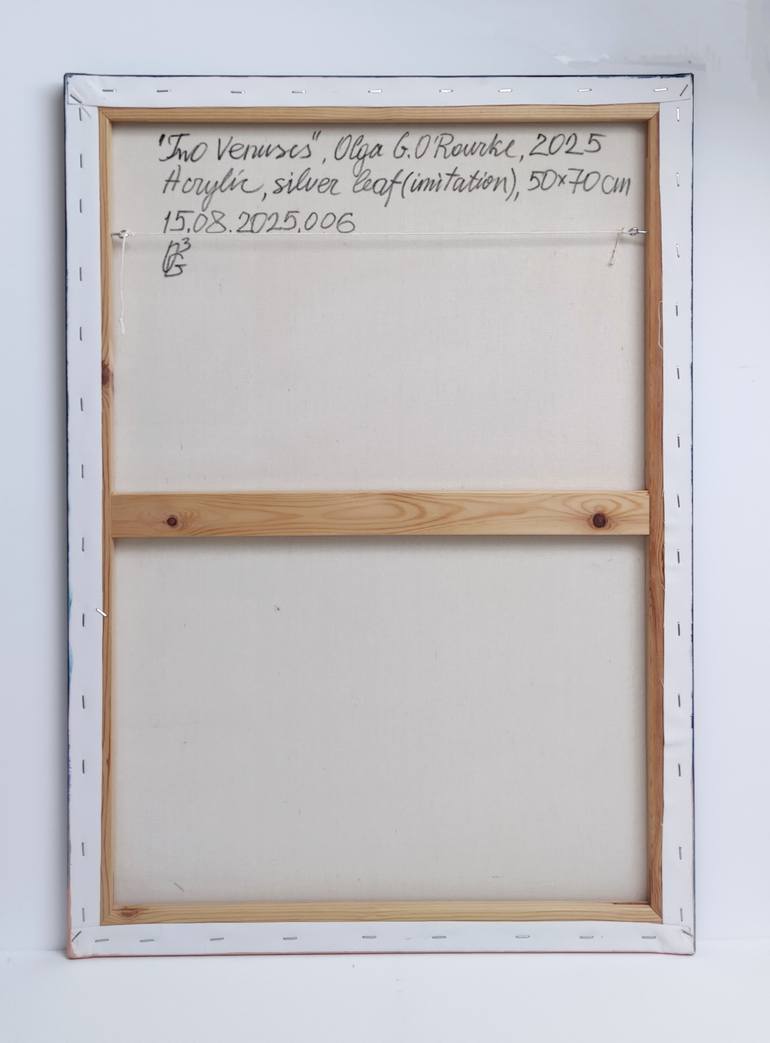 "Two Venuses", Olga G.O'Rourke, 2025
Acrylic, silver leaf (imitation), 50x70 cm
15.08.2025.006